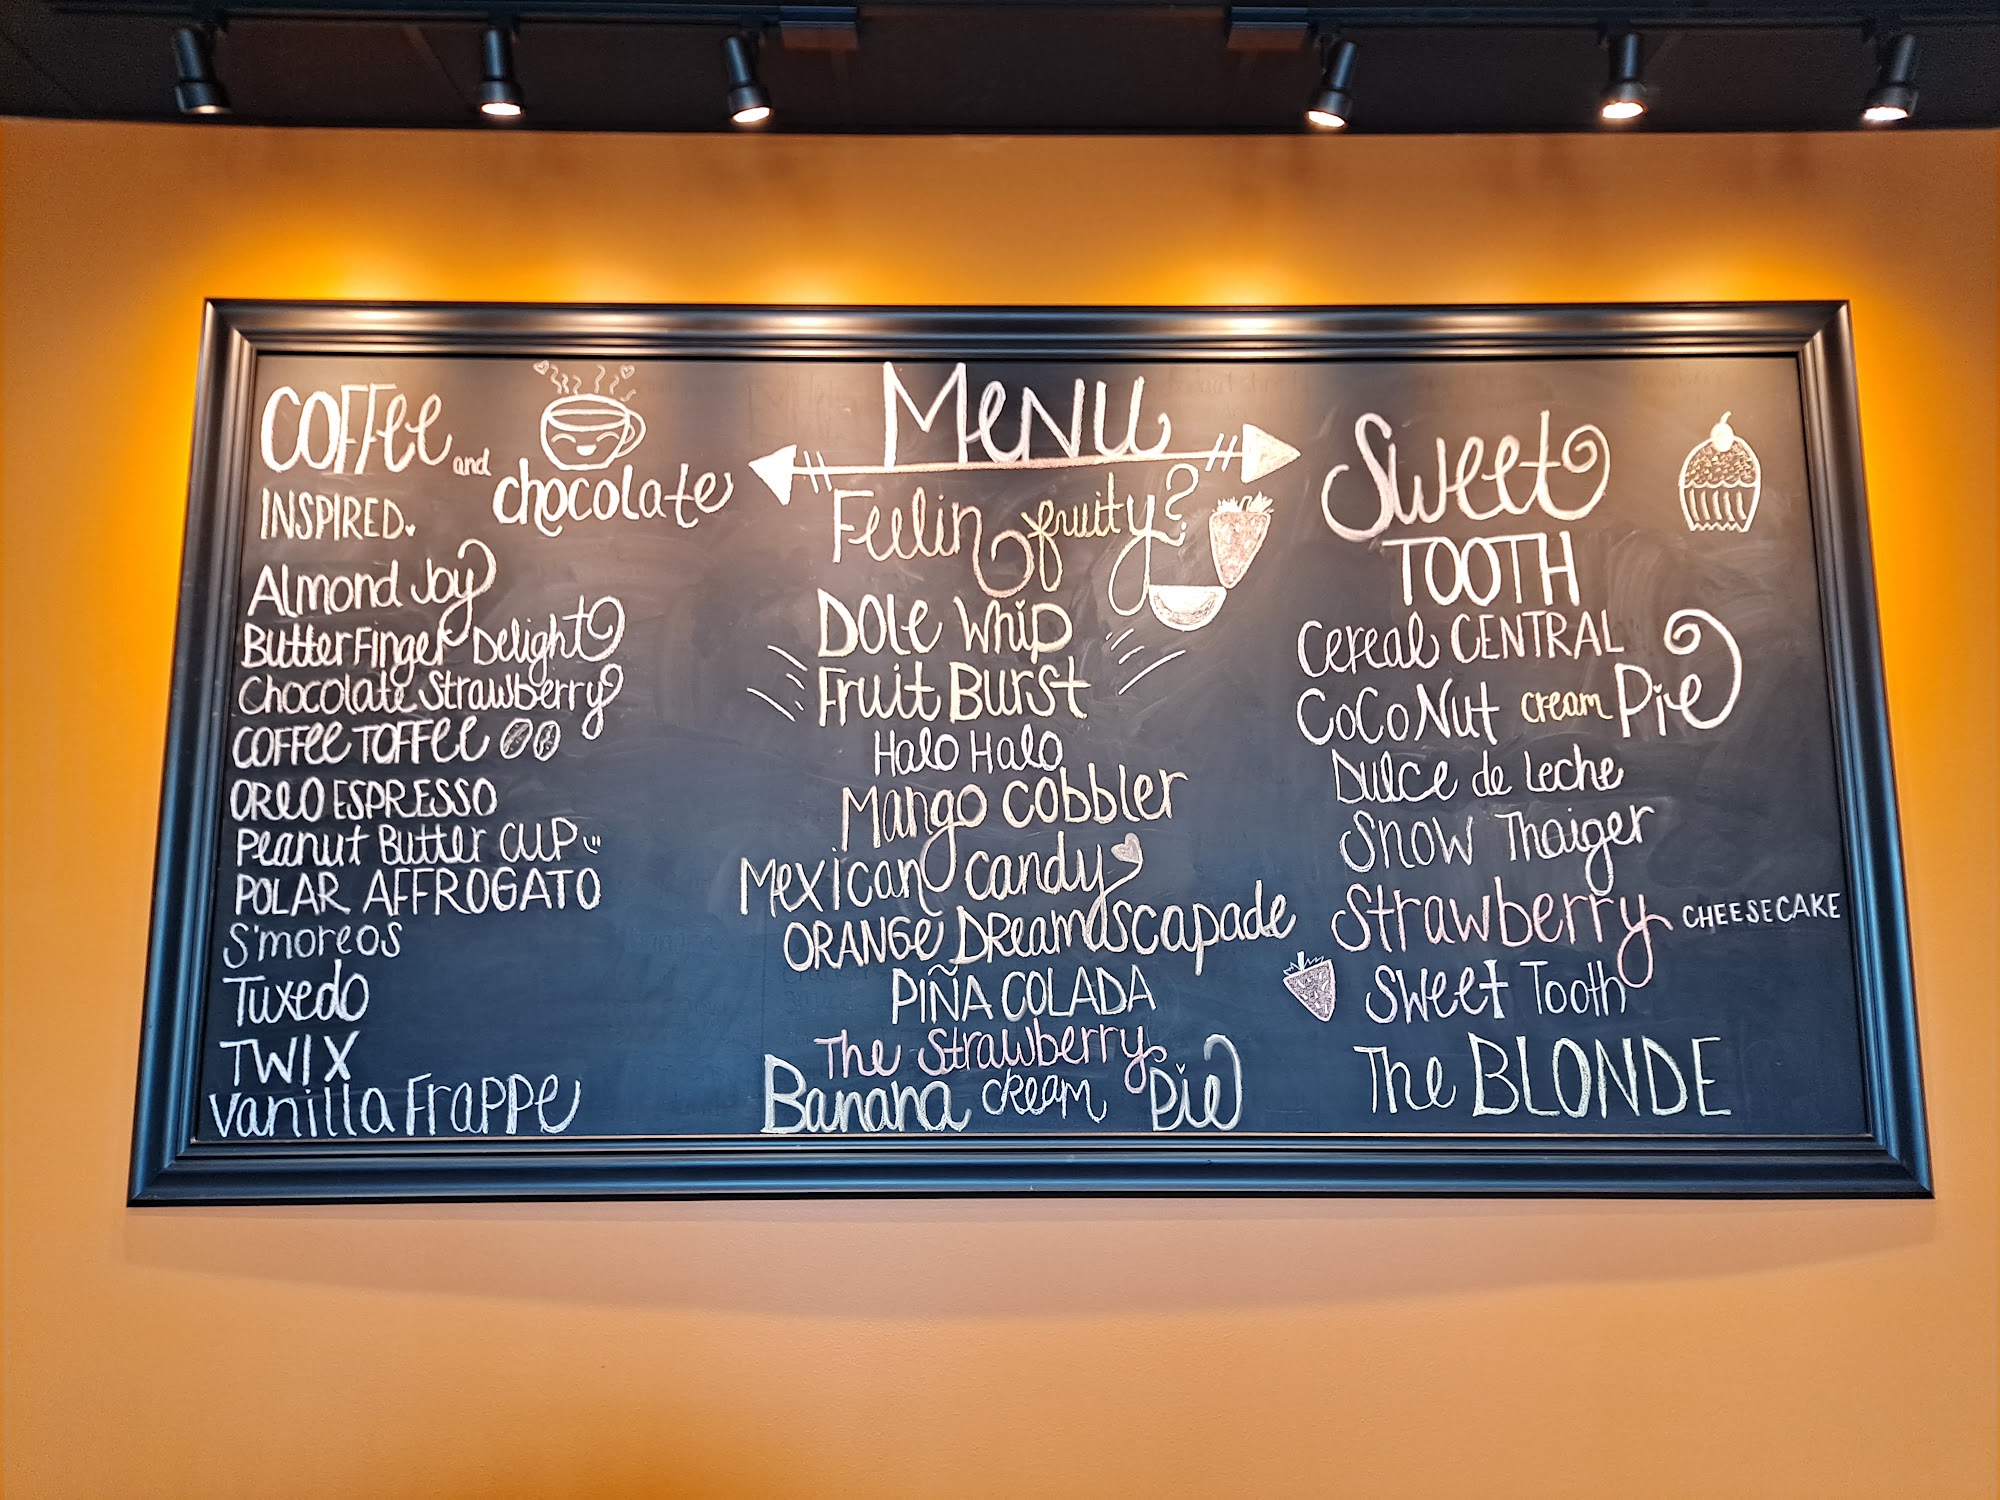 Menu
Coffee and chocolate
INSPIRED
Almond Joy
Butter Finger Delight
Chocolate Strawberry
Coffee Toffee
OREO ESPRESSO
Peanut Butter CUP
POLAR AFFROGATO
S'moreos
Tuxedo
TWIX
Vanilla Frappe
Feelin fruity?
Dole Whip
Fruit Burst
Halo Halo
Mango Cobbler
Mexican candy
ORANGE DReamscapade
PIÑA COLADA
The Strawberry
Banana cream Pie
Sweet
TOOTH
Cereal CENTRAL
CoCoNut cream Pie
Dulce de Leche
Snow Thaiger
Strawberry CHEESECAKE
Sweet Tooth
The BLONDE